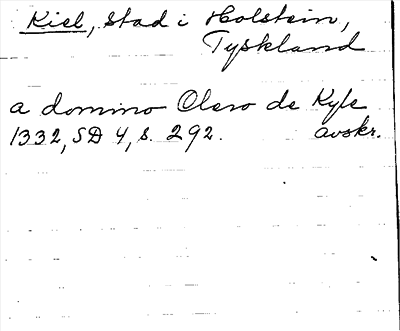 Kiel, Stad i Holstein,
Tyskland
a domino Olavo de Kyle
1332, SD 4, s. 292. avskr.